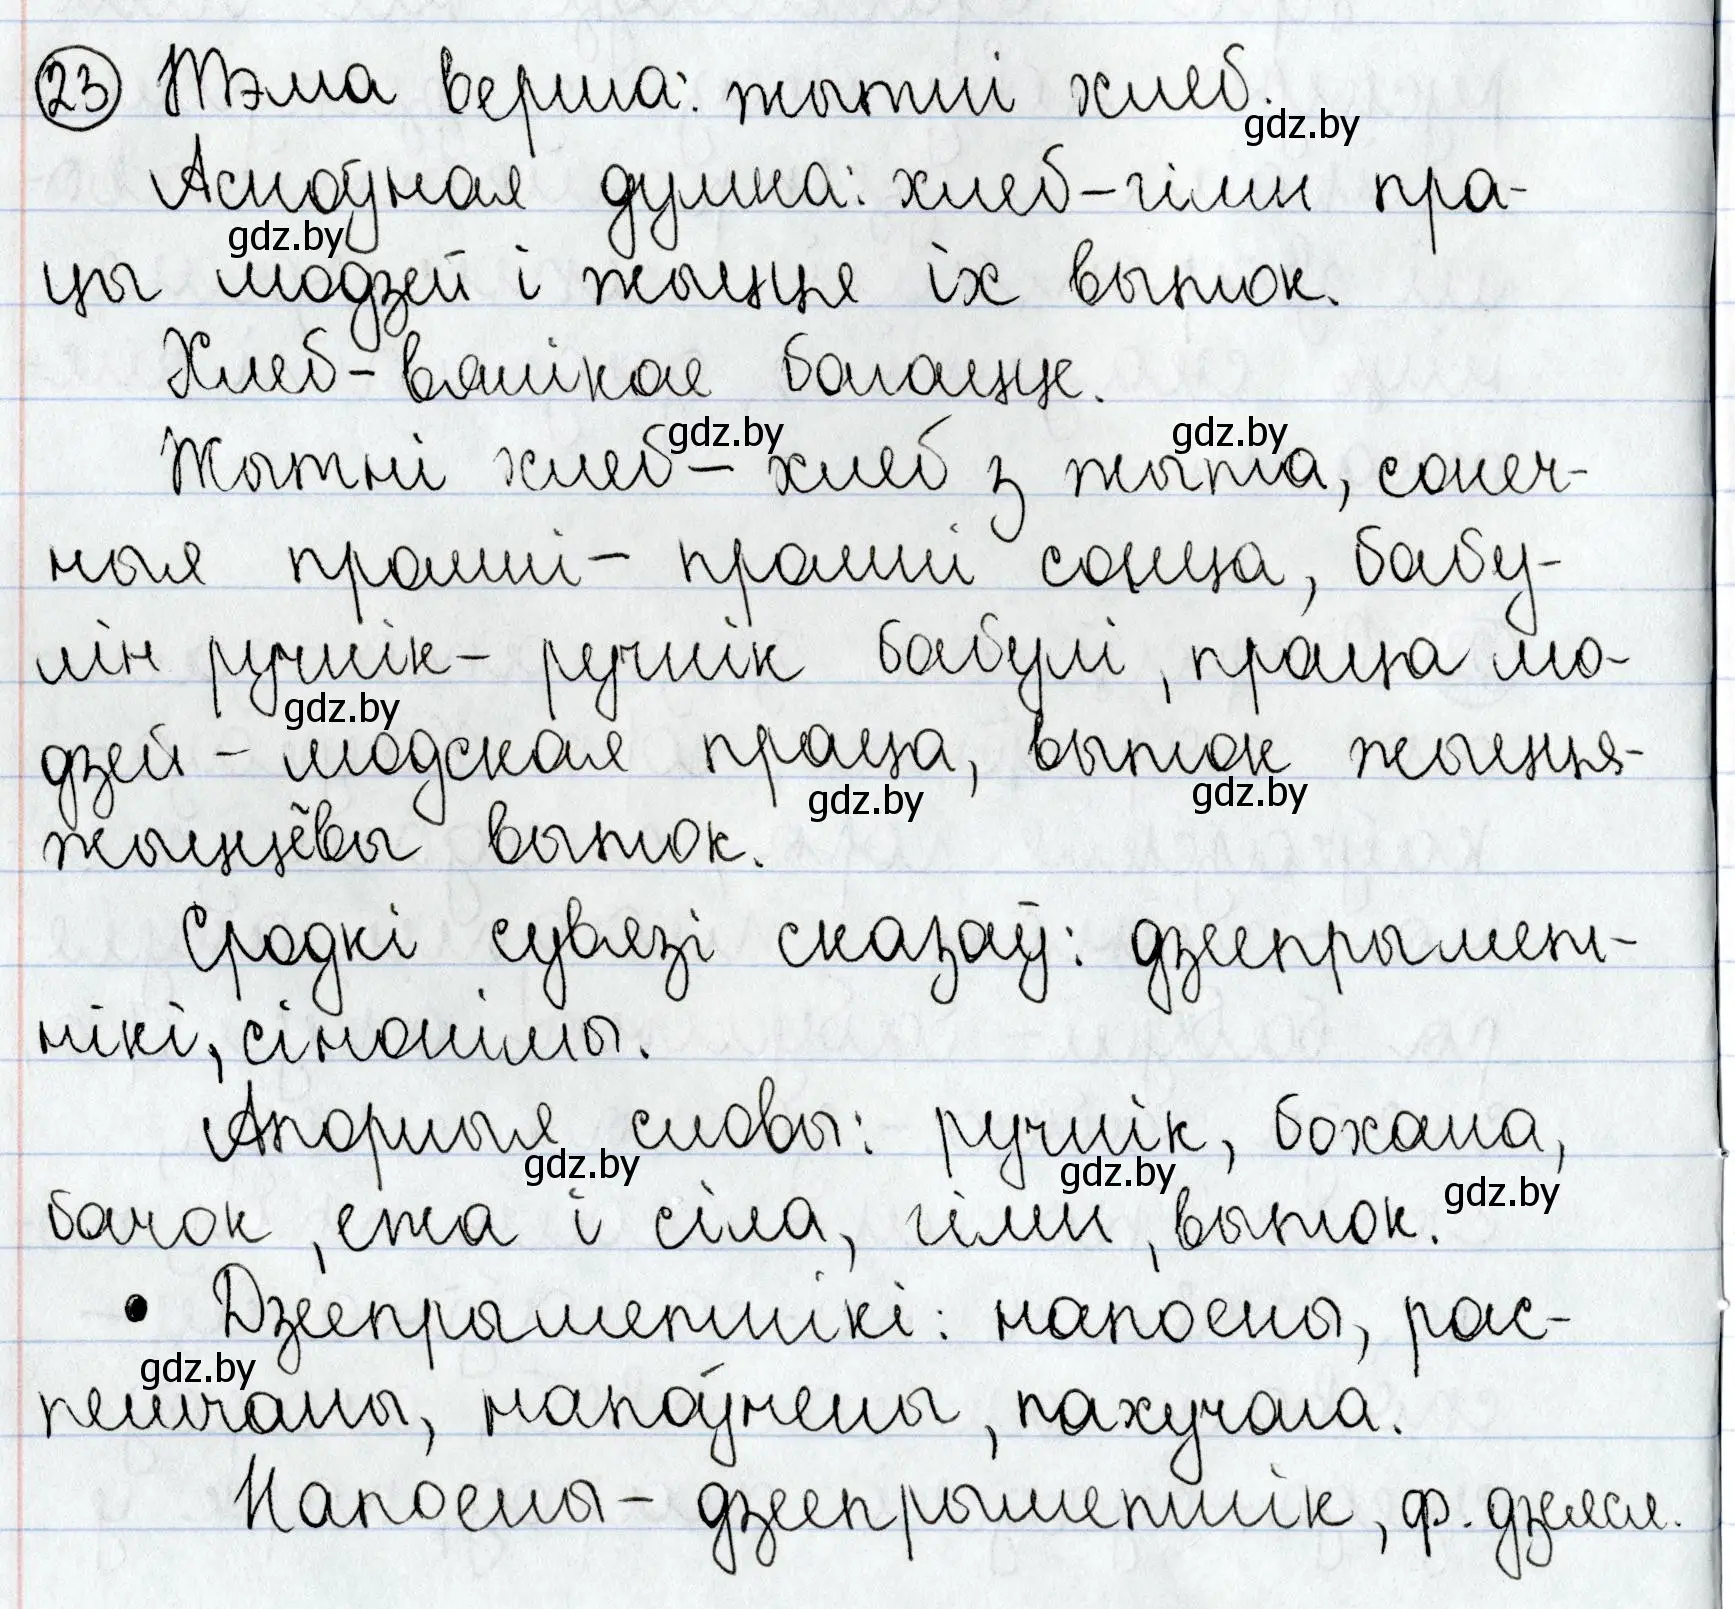 23 Тэма верша: жытні хлеб.
Асноўная думка: хлеб-гімн пра-
цы людзей і жыцця іх выток.
Хлеб-вялікае багацце.
Жытні хлеб - хлеб з жыта, сонеч-
ныя прамяні - прамяні сонца, бабу-
лін ручнік - ручнік бабулі, праца лю-
дзей - людская праца, выток жыцця-
жыццёвы выток.
Сродкі сувязі сказаў: дзеепрымет-
нікі, сінонімы.
Апорныя словы: ручнік, бохана,
бачок, ежа і сіла, гімн, выток.
• Дзеепрыметнікі: напоены, рас-
пешчаны, напоўнены, пахучага.
Напоены - дзеепрыметнік, ф. дзеясл.
gdz.by
gdz.by
gdz.by
gdz.by
gdz.by
gdz.by
gdz.by
gdz.by
gdz.by
gdz.by
gdz.by